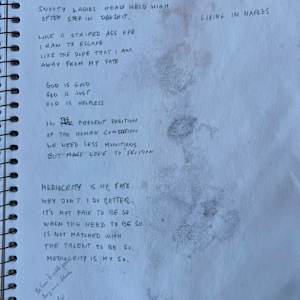 SNOOTY LADIES HEAD HELD HIGH
OFTEN STEP IN DOGSHIT.
LIVING IN NAPLES
LIKE A STRIPED ASS APE
I RAN TO ESCAPE
LIKE THE DOPE THAT I AM
AWAY FROM MY FATE
GOD IS GOOD
GOD IS JUST
GOD IS HELPLESS
IN DEFERENT POSITION
OF THE HUMAN CONDITION
WE NEED LESS MUNITIONS
BUT MAKE LOVE TO
MEDIOCRITY IS MY FATE.
WHY DON'T I DO BETTER.
IT'S NOT FAIR TO BE SO
WHEN THE NEED TO BE SO
IS NOT MATCHED WITH
THE TALENT TO BE SO.
MEDIOCRITY IS MY SO.